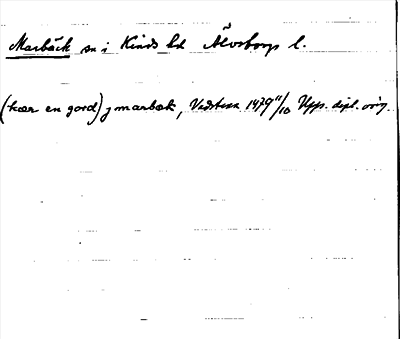 Marbäck sn i Kinds hd Älvsborgs l.
(kær en gord) j marbæk, Vadstena 1479 11/10 Upps. dipl. orig.